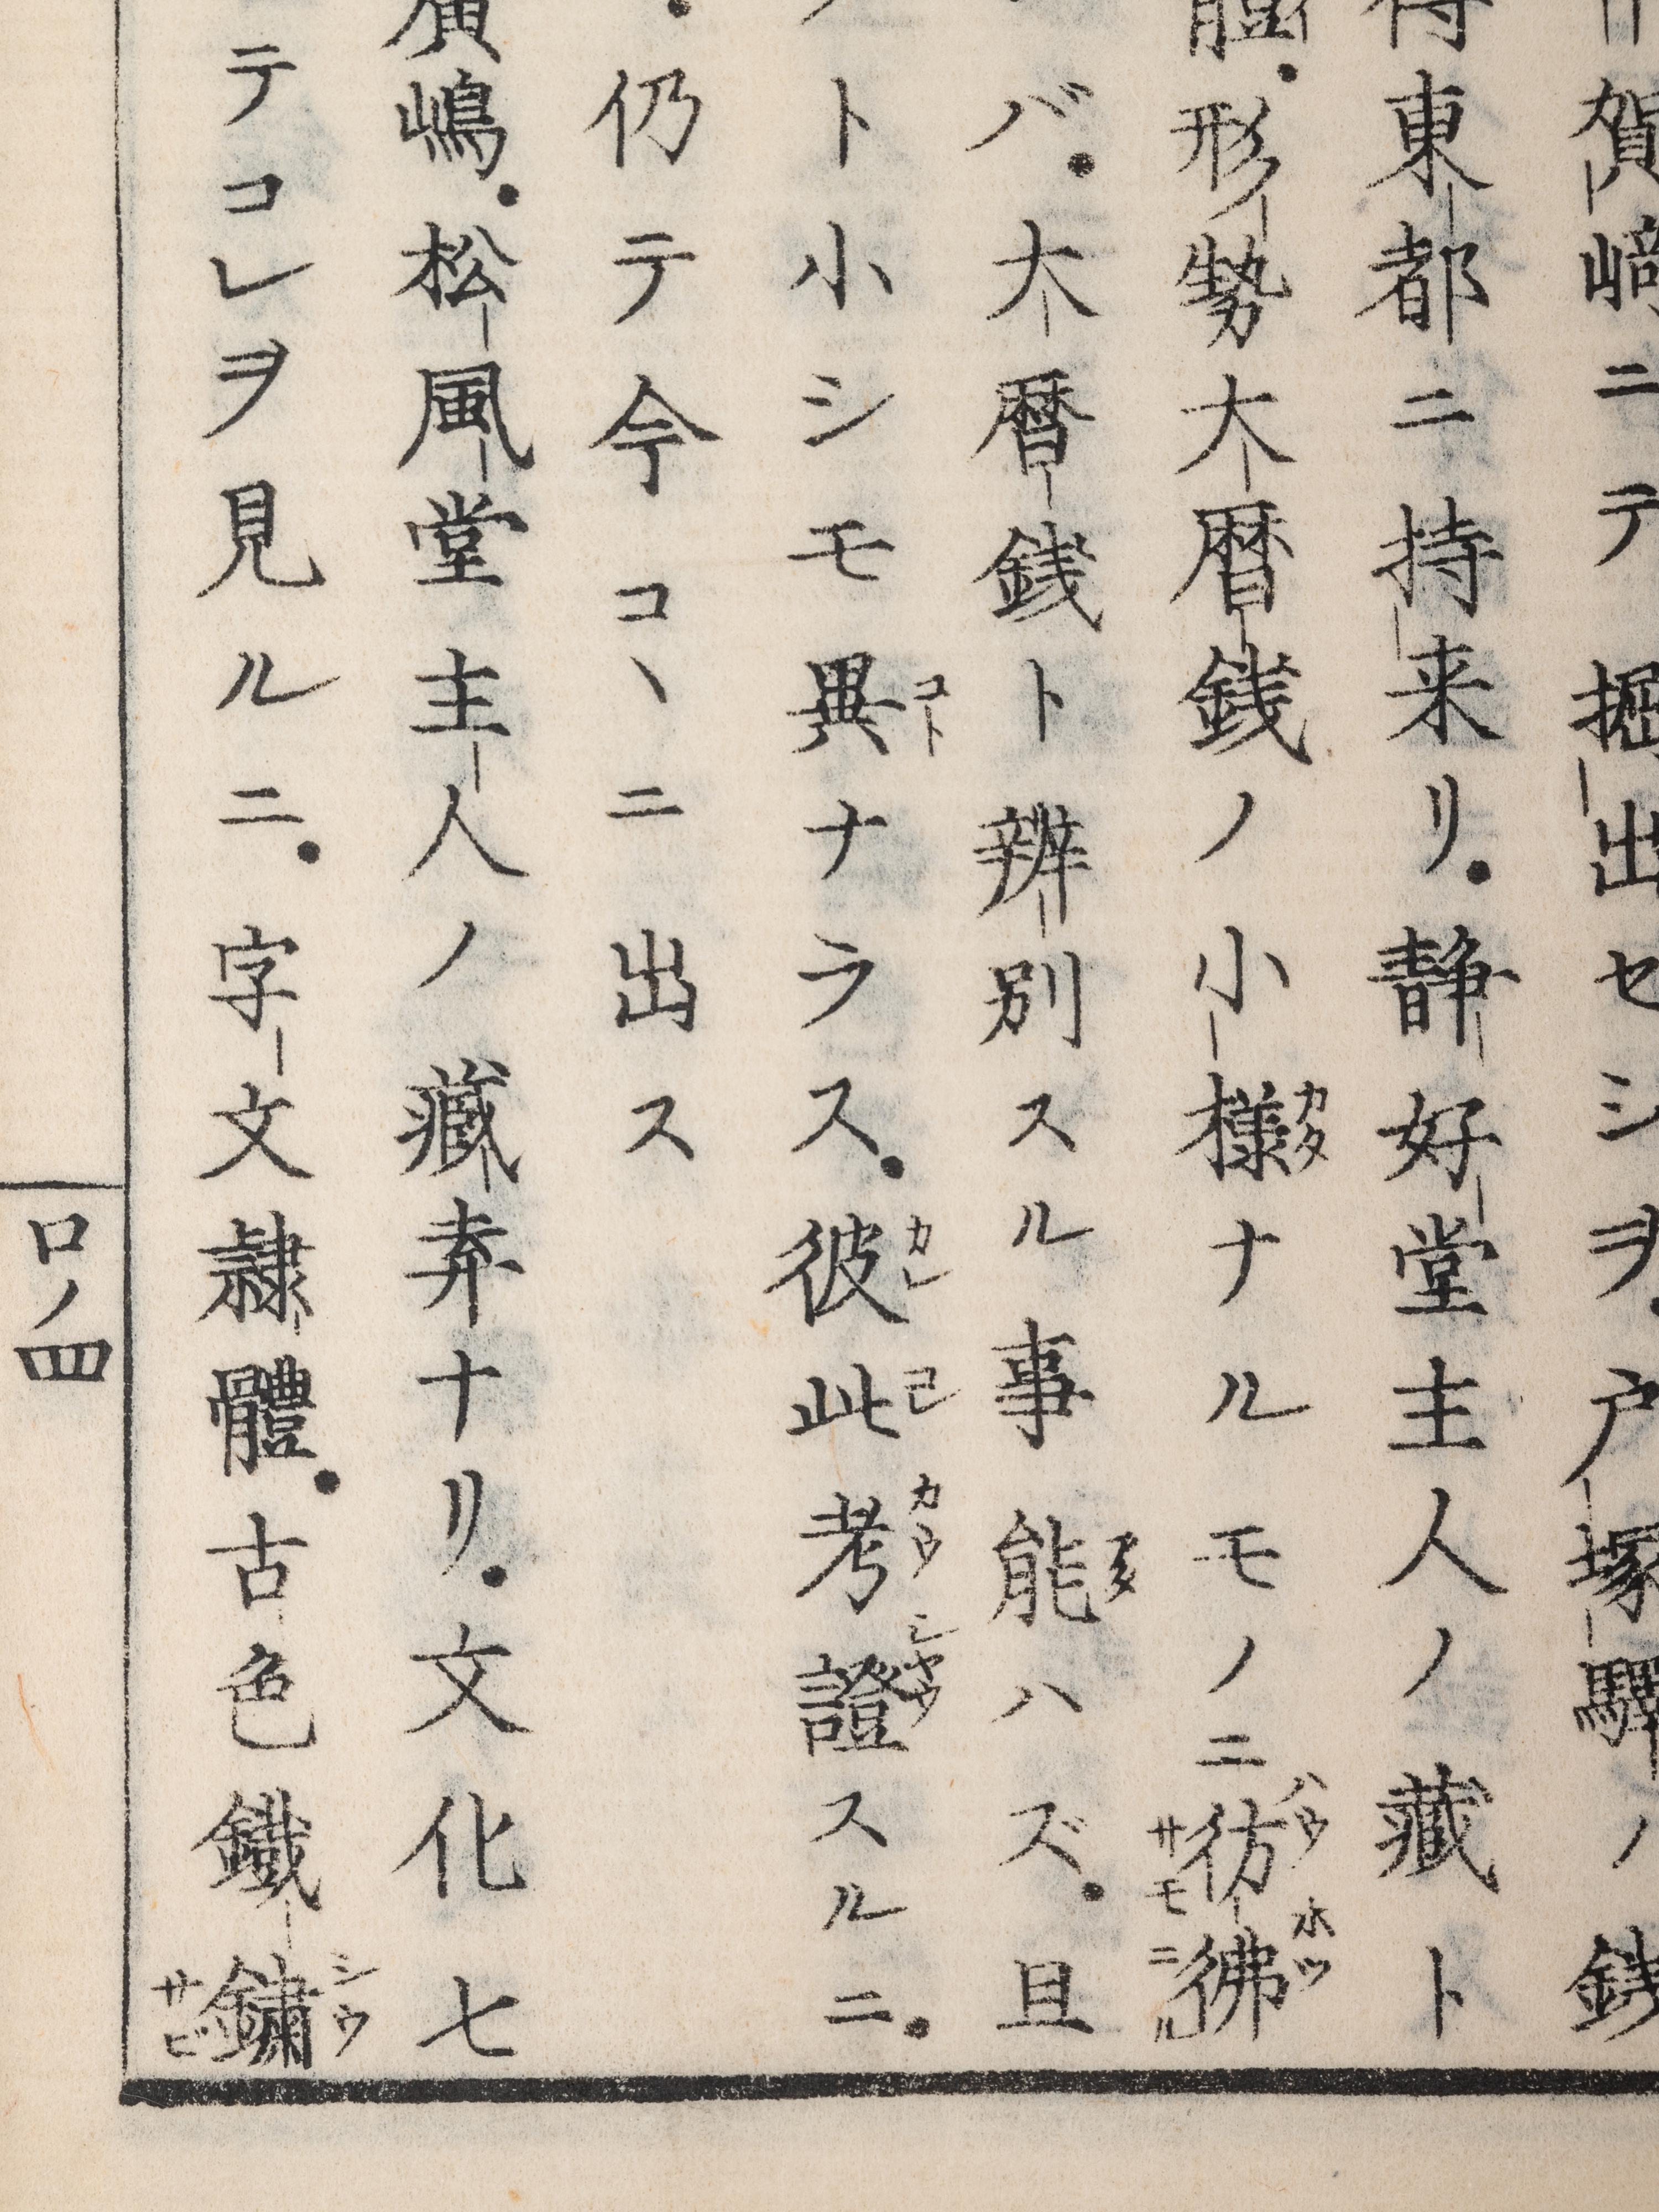 賀﨑ニテ掘出セシヲ.戸塚驛ノ銭
東都ニ持来リ.静好堂主人ノ藏ト
體.形勢大暦銭ノ小様ナルモノニ彷彿
バ.大暦銭ト辨別スル事能ハズ.且
ト小シモ異ナラス.彼此考證スルニ.
仍テ今コヽニ出ス
廣嶋.松風堂主人ノ藏弆ナリ.文化七
テコレヲ見ルニ.字文隷體.古色鐵鏽
ロノ四